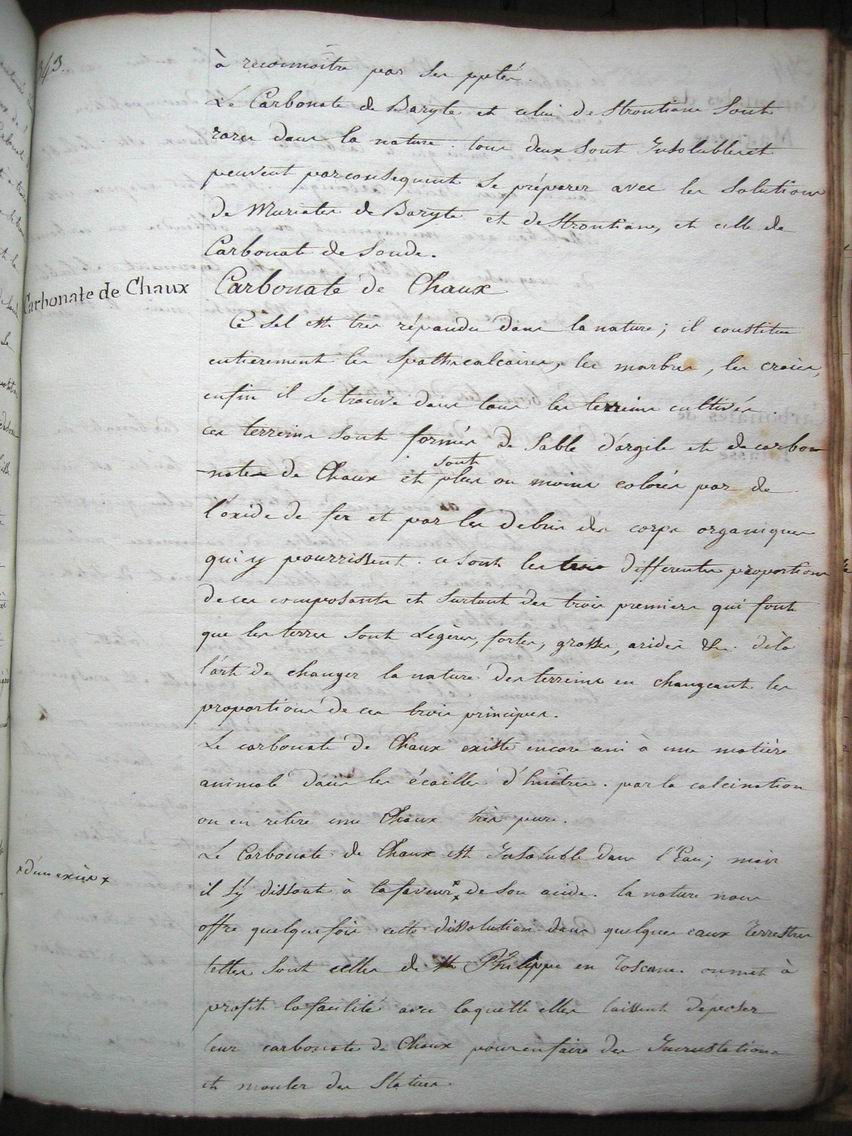 343.
à reconnoître par ses pptés.
Le Carbonate de Baryte et celui de Strontiane sont
rares dans la nature. tous deux sont Insolubles et
peuvent par consequent se préparer avec les solutions
de Muriates de Baryte et de Strontiane, et celle de
Carbonate de Soude.
Carbonate de Chaux
Carbonate de Chaux
Ce sel est tres répandu dans la nature; il constitue
entierement les Spaths calcaires, les marbres, les craies,
enfin il se trouve dans tous les terreins cultivés
ces terreins sont formés de sable d'argile et de carbo-
nate de Chaux et sont plus ou moins colorés par de
l'oxide de fer et par les debris des corps organiques
qui y pourrissent. ce sont les differentes proportions
de ces composants et surtout des trois premiers qui font
que les terres sont Legeres, fortes, grasses, arides &c. delà
l'art de changer la nature des terreins en changeant les
proportions de ces trois principes.
Le carbonate de Chaux existe encore uni à une matière
animale dans les écailles d'huîtres. par la calcination
on en retire une Chaux très pure.
Le Carbonate de Chaux est Insoluble dans l'Eau; mais
x d'un excès x
il s'y dissout à la faveur x de son acide. la nature nous
offre quelque fois cette dissolution dans quelques eaux Terrestres
telles sont celles de St Philippe en Toscane. on met à
profit la facilité avec laquelle elles laissent déposer
leur carbonate de Chaux pour en faire des Incrustations
et mouler des Statues.